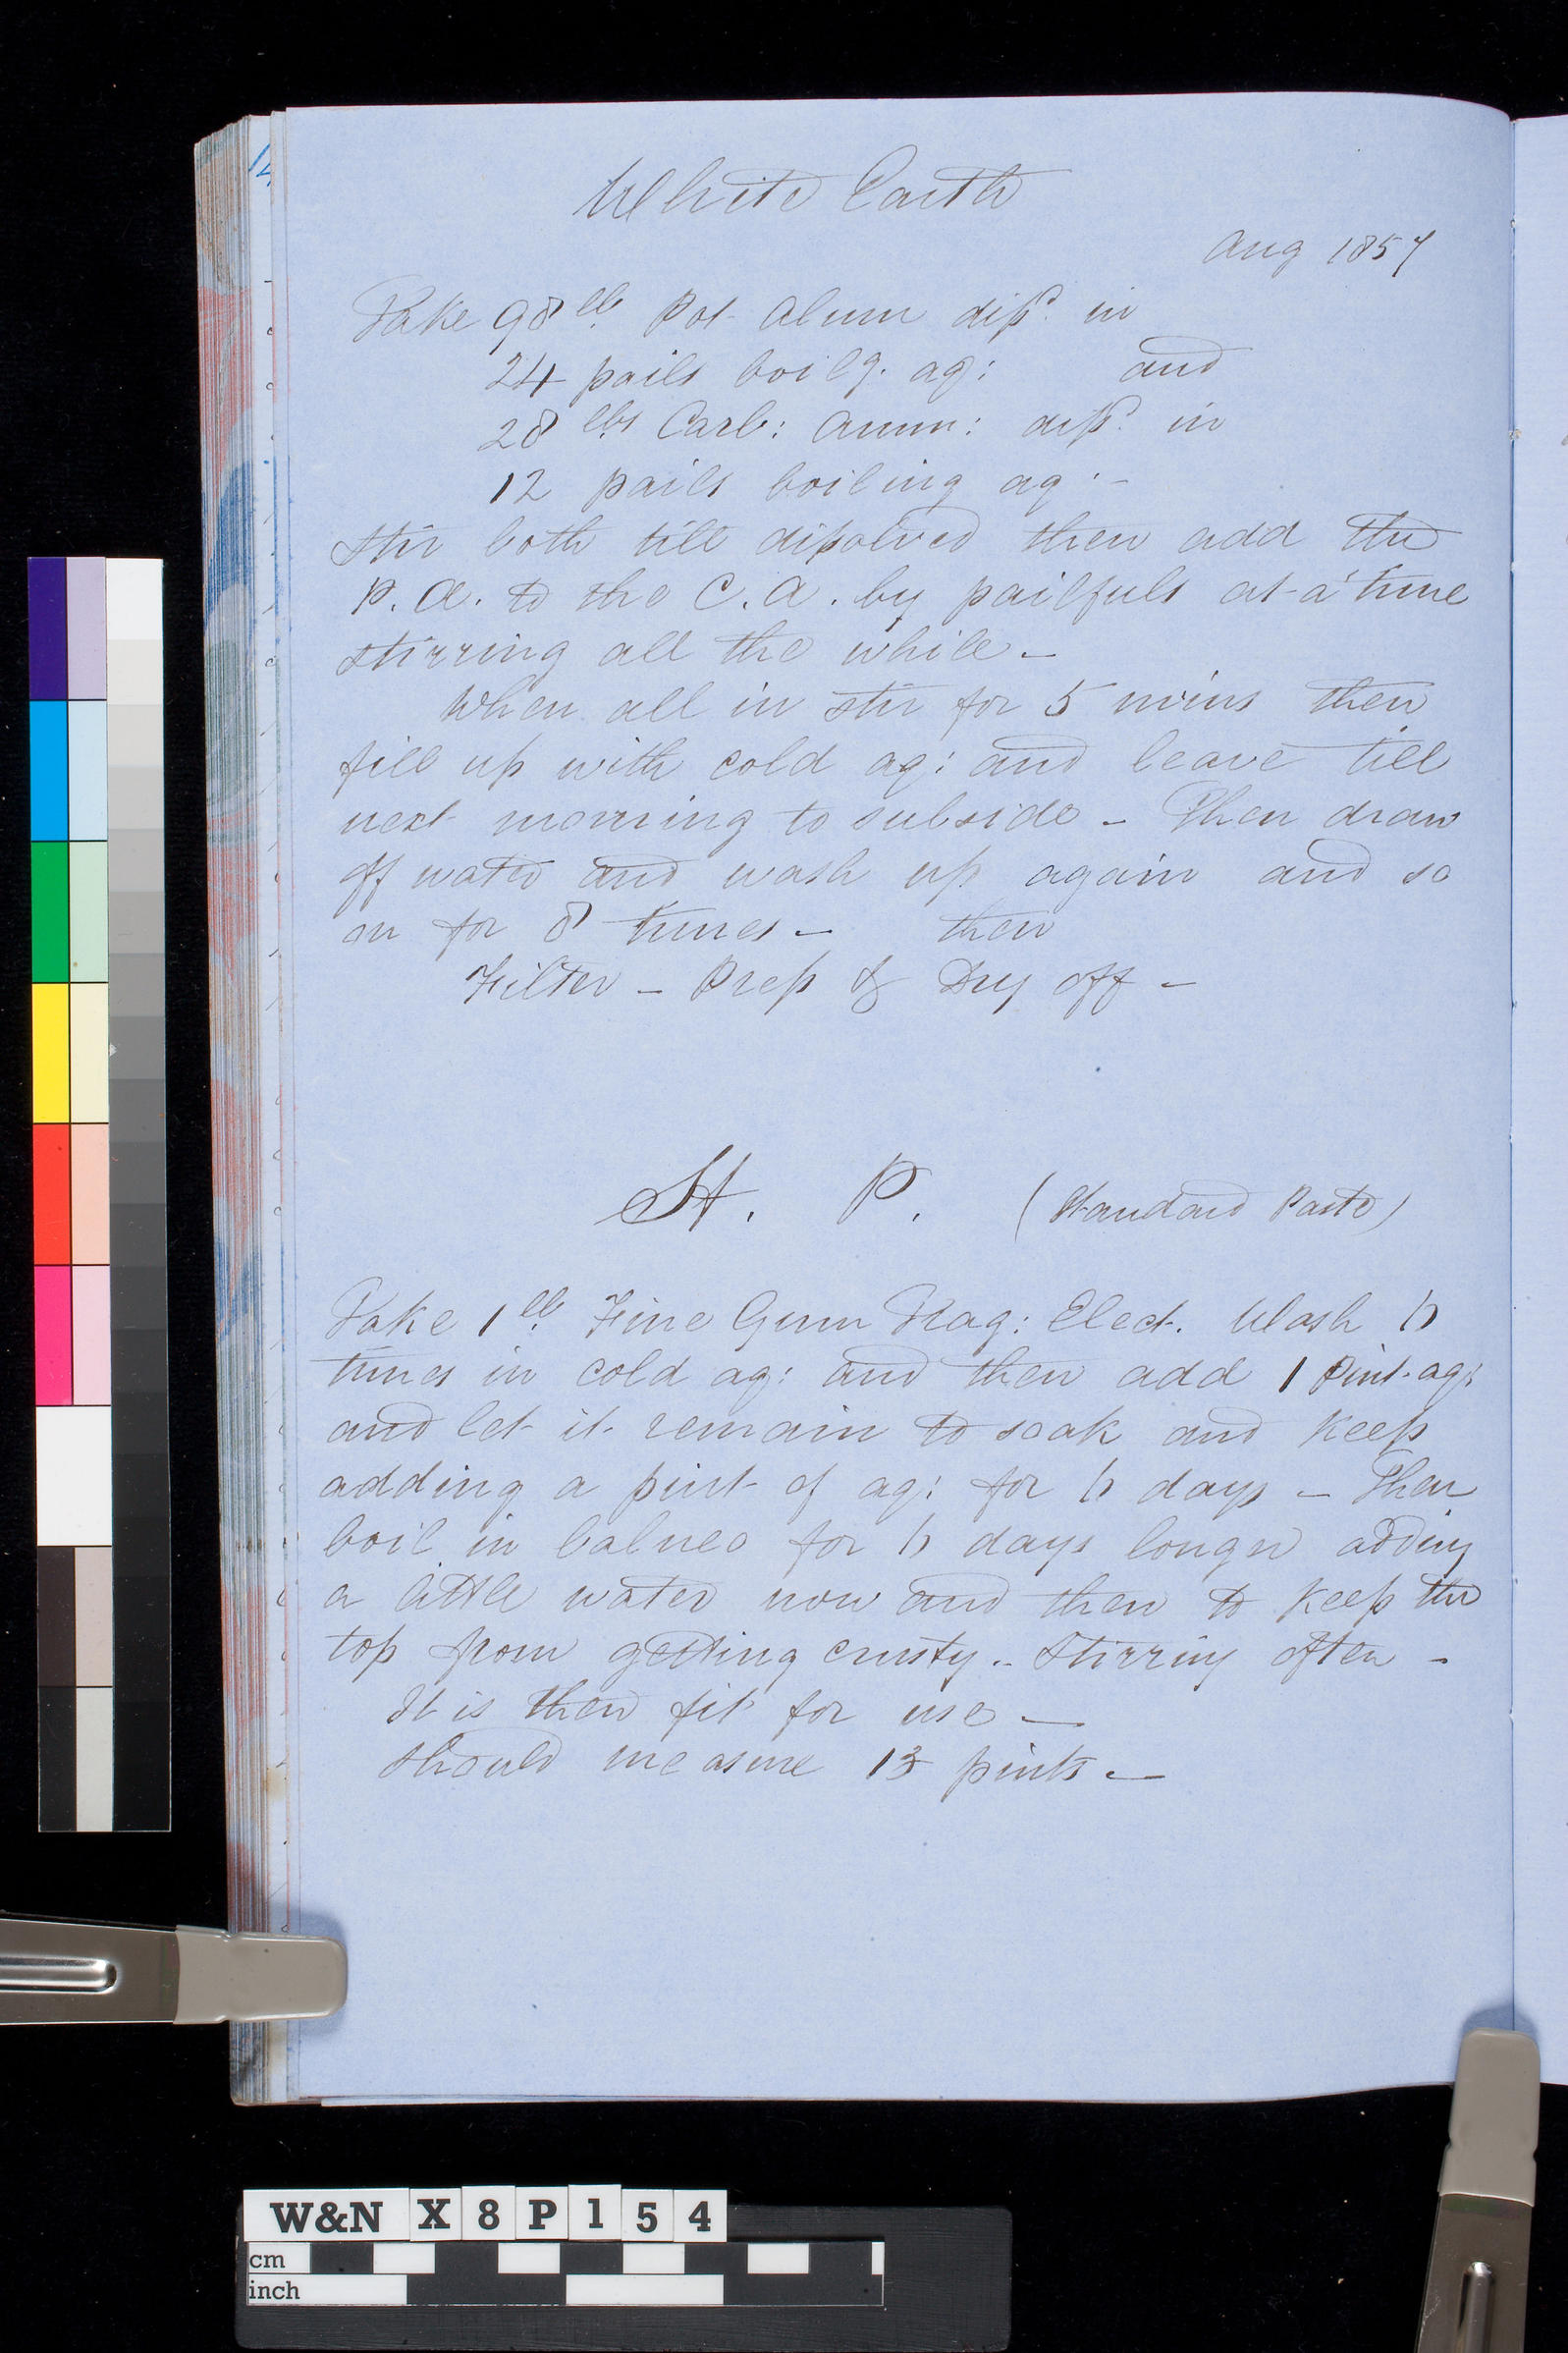 White Earth
Aug 1857
Take 98 lb. Pot Alum diss.d in
24 pails boilg. aq: and
28 lbs Carb: Amm: diss.d in
12 pails boiling aq: -
Stir both till dissolved then add the
P. A. to the C. A. by pailfuls at a time
stirring all the while -
When all in stir for 5 mins then
fill up with cold aq: and leave till
next morning to subside - Then draw
off water and wash up again and so
on for 8 times - then
Filter - Press & Dry off -
St. P. (Standard Paste)
Take 1 lb. Fine Gum Trag: Elect. Wash
times in cold aq: and then add 1 Pint aq:
and let it remain to soak and keep
adding a pint of aq: for days - Then
boil in balneo for days longer adding
a little water now and then to keep the
top from getting crusty - Stirring often -
It is then fit for use -
Should measure 13 pints -
W&N X 8 P 1 5 4
cm
inch